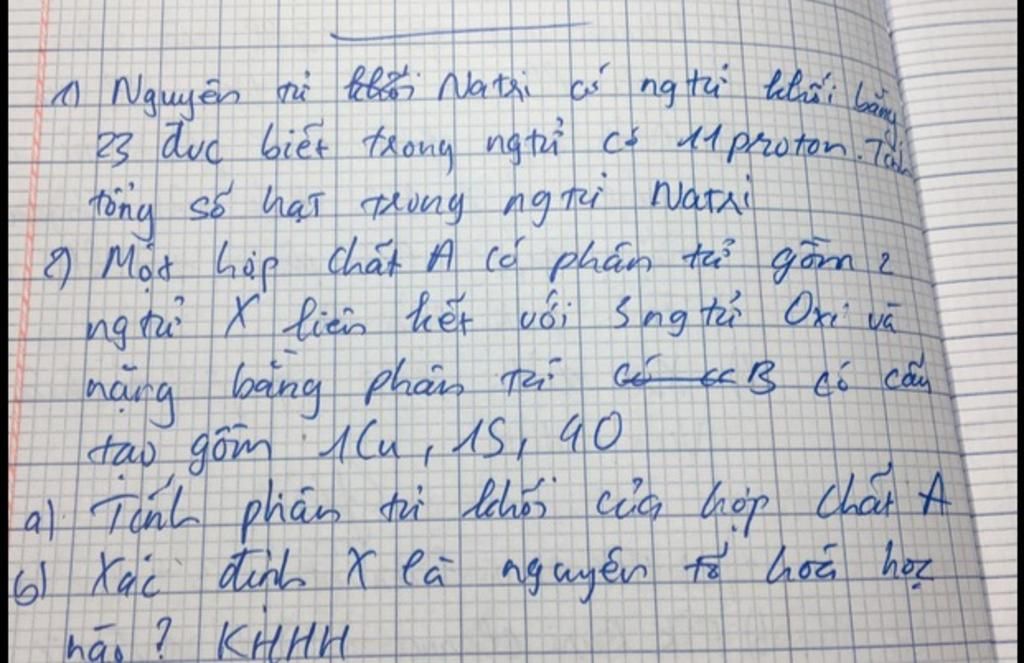 1) Nguyên tử Natri có ngtử khối bằng
23 đvc biết trong ngtử có 11 proton. Tính
tổng số hạt trong ngtử Natri
2) Một hợp chất A có phân tử gồm 2
ngtử X liên kết với 5 ngtử Oxi và
nặng bằng phân tử B có cấu
tạo gồm 1Cu, 1S, 4O
a) Tính phân tử khối của hợp chất A
b) Xác định X là nguyên tố hoá học
nào? KHHH